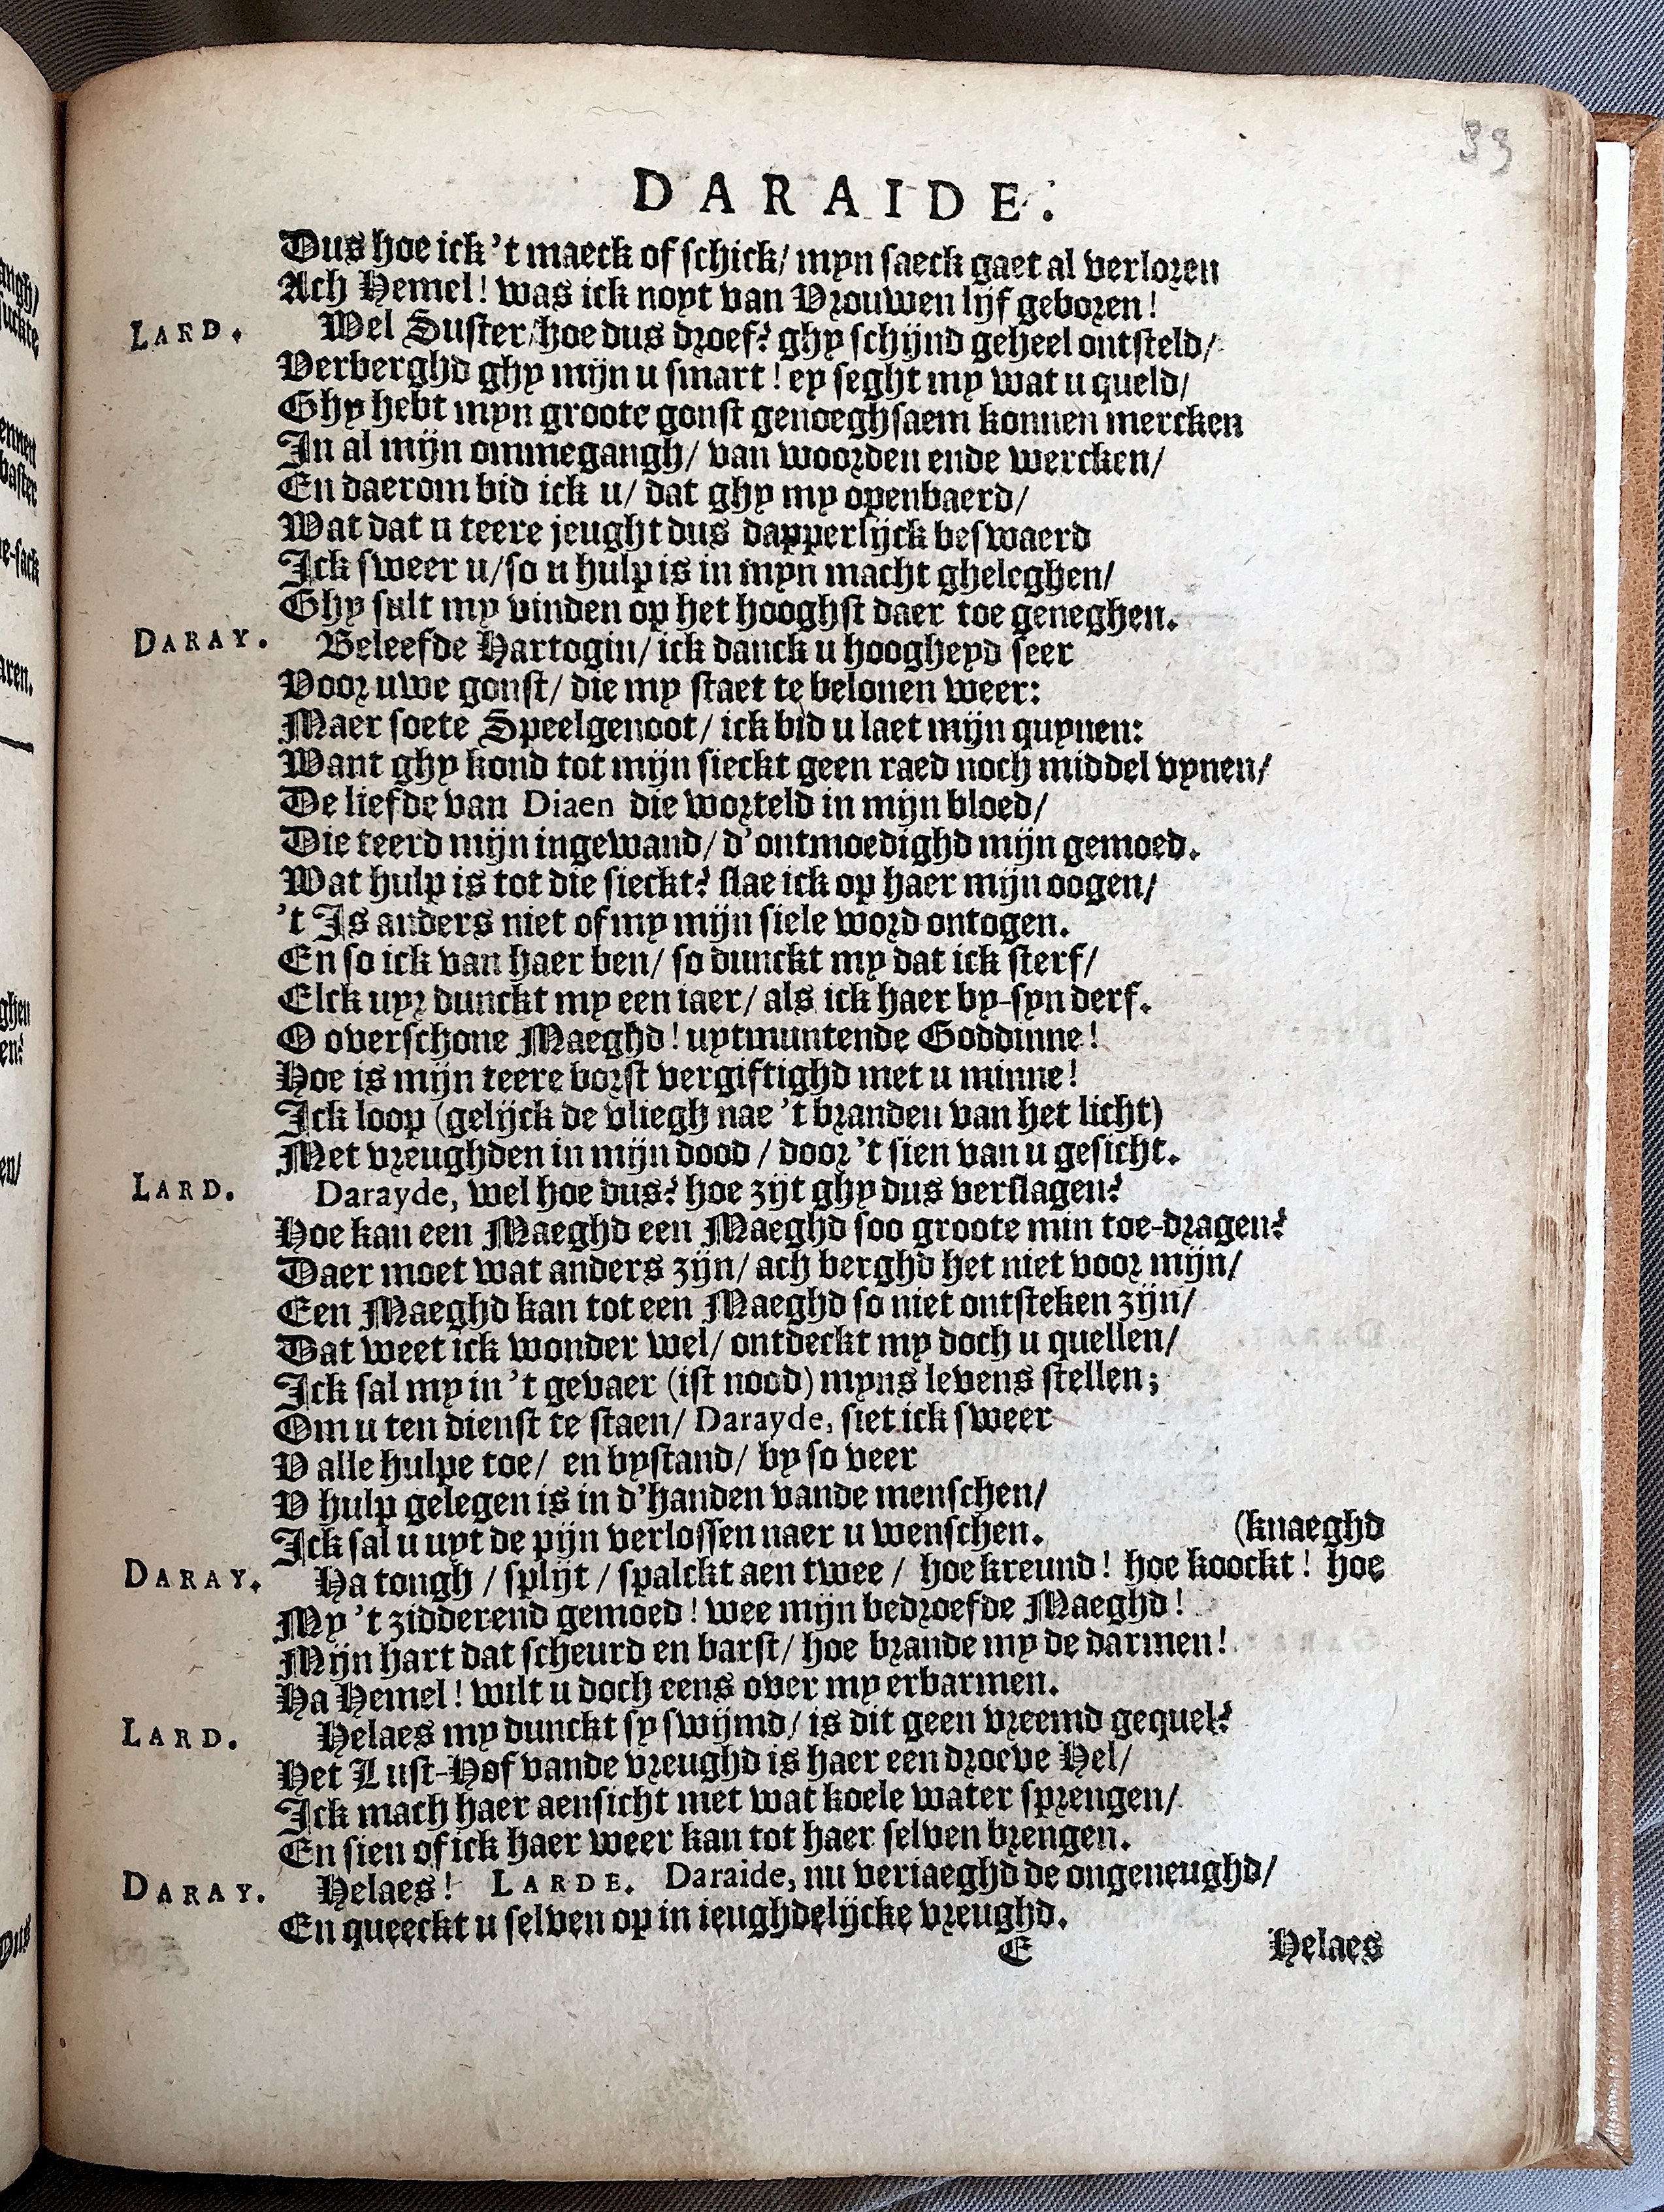 33
DARAIDE.
Dus hoe ick 't maeck of schick/ myn saeck gaet al verloren
Ach Hemel! was ick noyt van Vrouwen lijf geboren!
LARD. Wel Suster/hoe dus droef? ghy schijnd geheel ontsteld/
Verberghd ghy mijn u smart! ey seght my wat u queld/
Ghy hebt myn groote gonst genoeghsaem konnen mercken
In al mijn ommegangh/ van woorden ende wercken/
En daerom bid ick u/ dat ghy my openbaerd/
Wat dat u teere jeught dus dapperlijck beswaerd
Ick sweer u/so u hulp is in myn macht gheleghen/
Ghy sult my vinden op het hooghst daer toe geneghen.
DARAY. Beleefde Hartogin/ ick danck u hoogheyd seer
Voor uwe gonst/ die my staet te belonen weer:
Maer soete Speelgenoot/ ick bid u laet mijn quynen:
Want ghy kond tot mijn sieckt geen raed noch middel vynen/
De liefde van Diaen die worteld in mijn bloed/
Die teerd mijn ingewand/ d'ontmoedighd mijn gemoed.
Wat hulp is tot die sieckt? slae ick op haer mijn oogen/
't Is anders niet of my mijn siele word ontogen.
En so ick van haer ben/ so dunckt my dat ick sterf/
Elck uyr dunckt my een iaer/ als ick haer by-syn derf.
O overschone Maeghd! uytmuntende Goddinne!
Hoe is mijn teere borst vergiftighd met u minne!
Ick loop (gelijck de vliegh nae 't branden van het licht)
Met vreughden in mijn dood / door 't sien van u gesicht.
LARD. Darayde, wel hoe dus? hoe zijt ghy dus verslagen?
Hoe kan een Maeghd een Maeghd soo groote min toe-dragen?
Daer moet wat anders zijn/ ach berghd het niet voor mijn/
Een Maeghd kan tot een Maeghd so niet ontsteken zijn/
Dat weet ick wonder wel/ ontdeckt my doch u quellen/
Ick sal my in 't gevaer (ist nood) myns levens stellen;
Om u ten dienst te staen/ Darayde, siet ick sweer
V alle hulpe toe/ en bystand/ by so veer
V hulp gelegen is in d'handen vande menschen/
Ick sal u uyt de pijn verlossen naer u wenschen. (knaeghd
DARAY. Ha tongh / splijt / spalckt aen twee / hoe kreund! hoe koockt! hoe
My 't zidderend gemoed! wee mijn bedroefde Maeghd!
Mijn hart dat scheurd en barst/ hoe brande my de darmen!
Ha Hemel! wilt u doch eens over my erbarmen.
LARD. Helaes my dunckt sy swijmd/ is dit geen vreemd gequel?
Het Lust-Hof vande vreughd is haer een droeve Hel/
Ick mach haer aensicht met wat koele water sprengen/
En sien of ick haer weer kan tot haer selven brengen.
DARAY. Helaes! LARDE. Daraide, nu veriaeghd de ongeneughd/
En queeckt u selven op in ieughdelijcke vreughd.
E Helaes